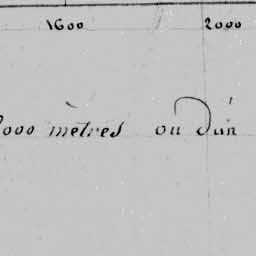 1600 2000
000 mètres ou d'un